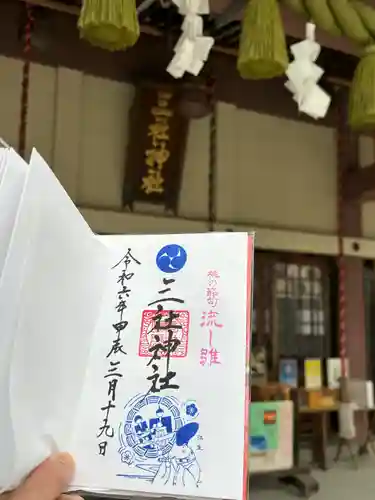 三社神社
桃の節句
流し雛
三社神社
令和六年甲辰三月十九日